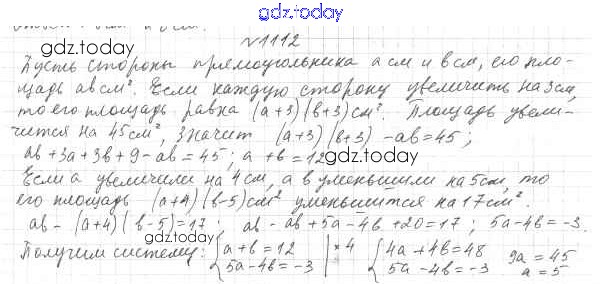 gdz.today
№1112
gdz.today
Пусть стороны прямоугольника а см и в см, его пло-
щадь ав см². Если каждую сторону увеличить на 3 см,
то его площадь равна (а+3)(в+3) см². Площадь увели-
чится на 45 см², значит (а+3)(в+3) -ав=45;
ав+3а+3в+9-ав=45; а+в=12
gdz.today
Если а увеличили на 4 см, а в уменьшили на 5 см, то
его площадь (а+4)(в-5) см² уменьшится на 17 см².
ав-(а+4)(в-5)=17; ав-ав+5а-4в+20=17; 5а-4в=-3.
gdz.today
Получим систему: { а+в=12 |*4 { 4а+4в=48 9а=45
5а-4в=-3 5а-4в=-3 а=5